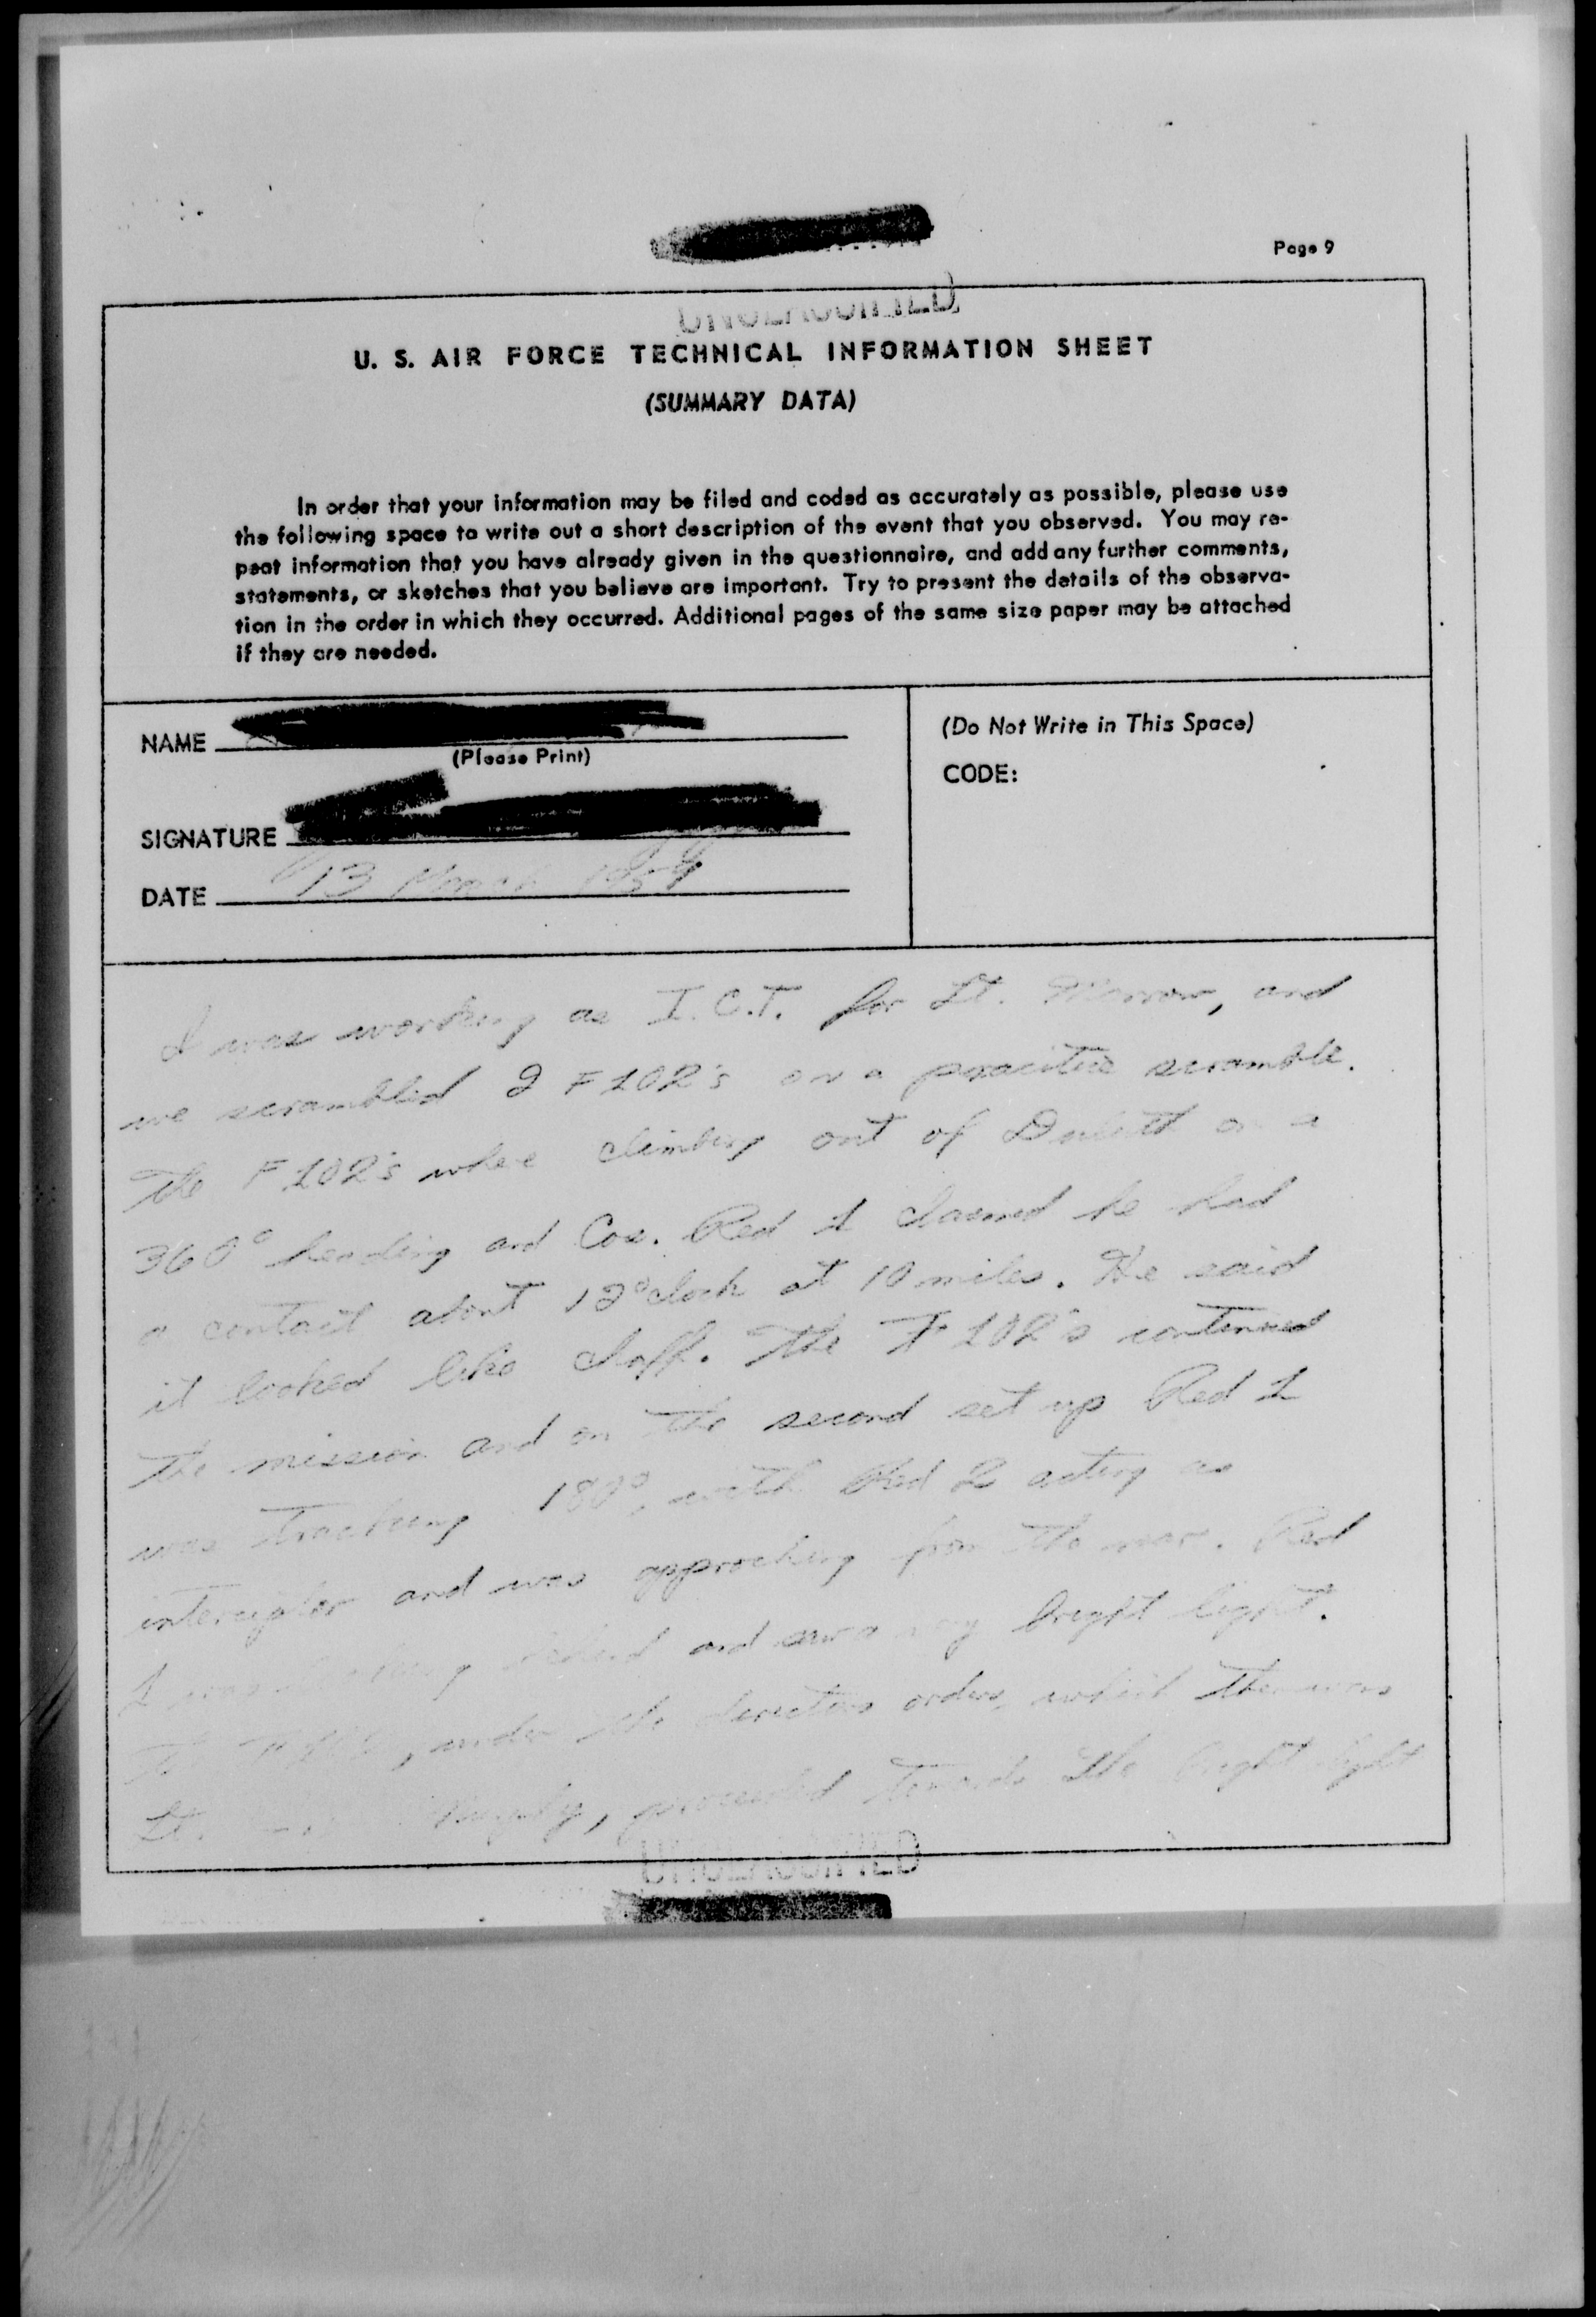 Page 9
UNCLASSIFIED
U. S. AIR FORCE TECHNICAL INFORMATION SHEET
(SUMMARY DATA)
In order that your information may be filed and coded as accurately as possible, please use
the following space to write out a short description of the event that you observed. You may re-
peat information that you have already given in the questionnaire, and add any further comments,
statements, or sketches that you believe are important. Try to present the details of the observa-
tion in the order in which they occurred. Additional pages of the same size paper may be attached
if they are needed.
NAME
(Please Print)
SIGNATURE
DATE 13 March 1959
(Do Not Write in This Space)
CODE:
I was working as I.C.T. for Lt. Morrow, and
we scrambled 2 F102's on a practice scramble.
The F102's where climbing out of Duluth on a
360° heading and Coe. Red 1 claimed he had
a contact about 12 o'clock at 10 miles. He said
it looked like chaff. The F102's continued
the mission and on the second set up Red 1
was tracking 180°, with Red 2 acting as
intercepter and was approching from the rear. Red
1 was and saw a bright light.
under the directors orders, which then was
Lt. proceeded towards the bright light
UNCLASSIFIED